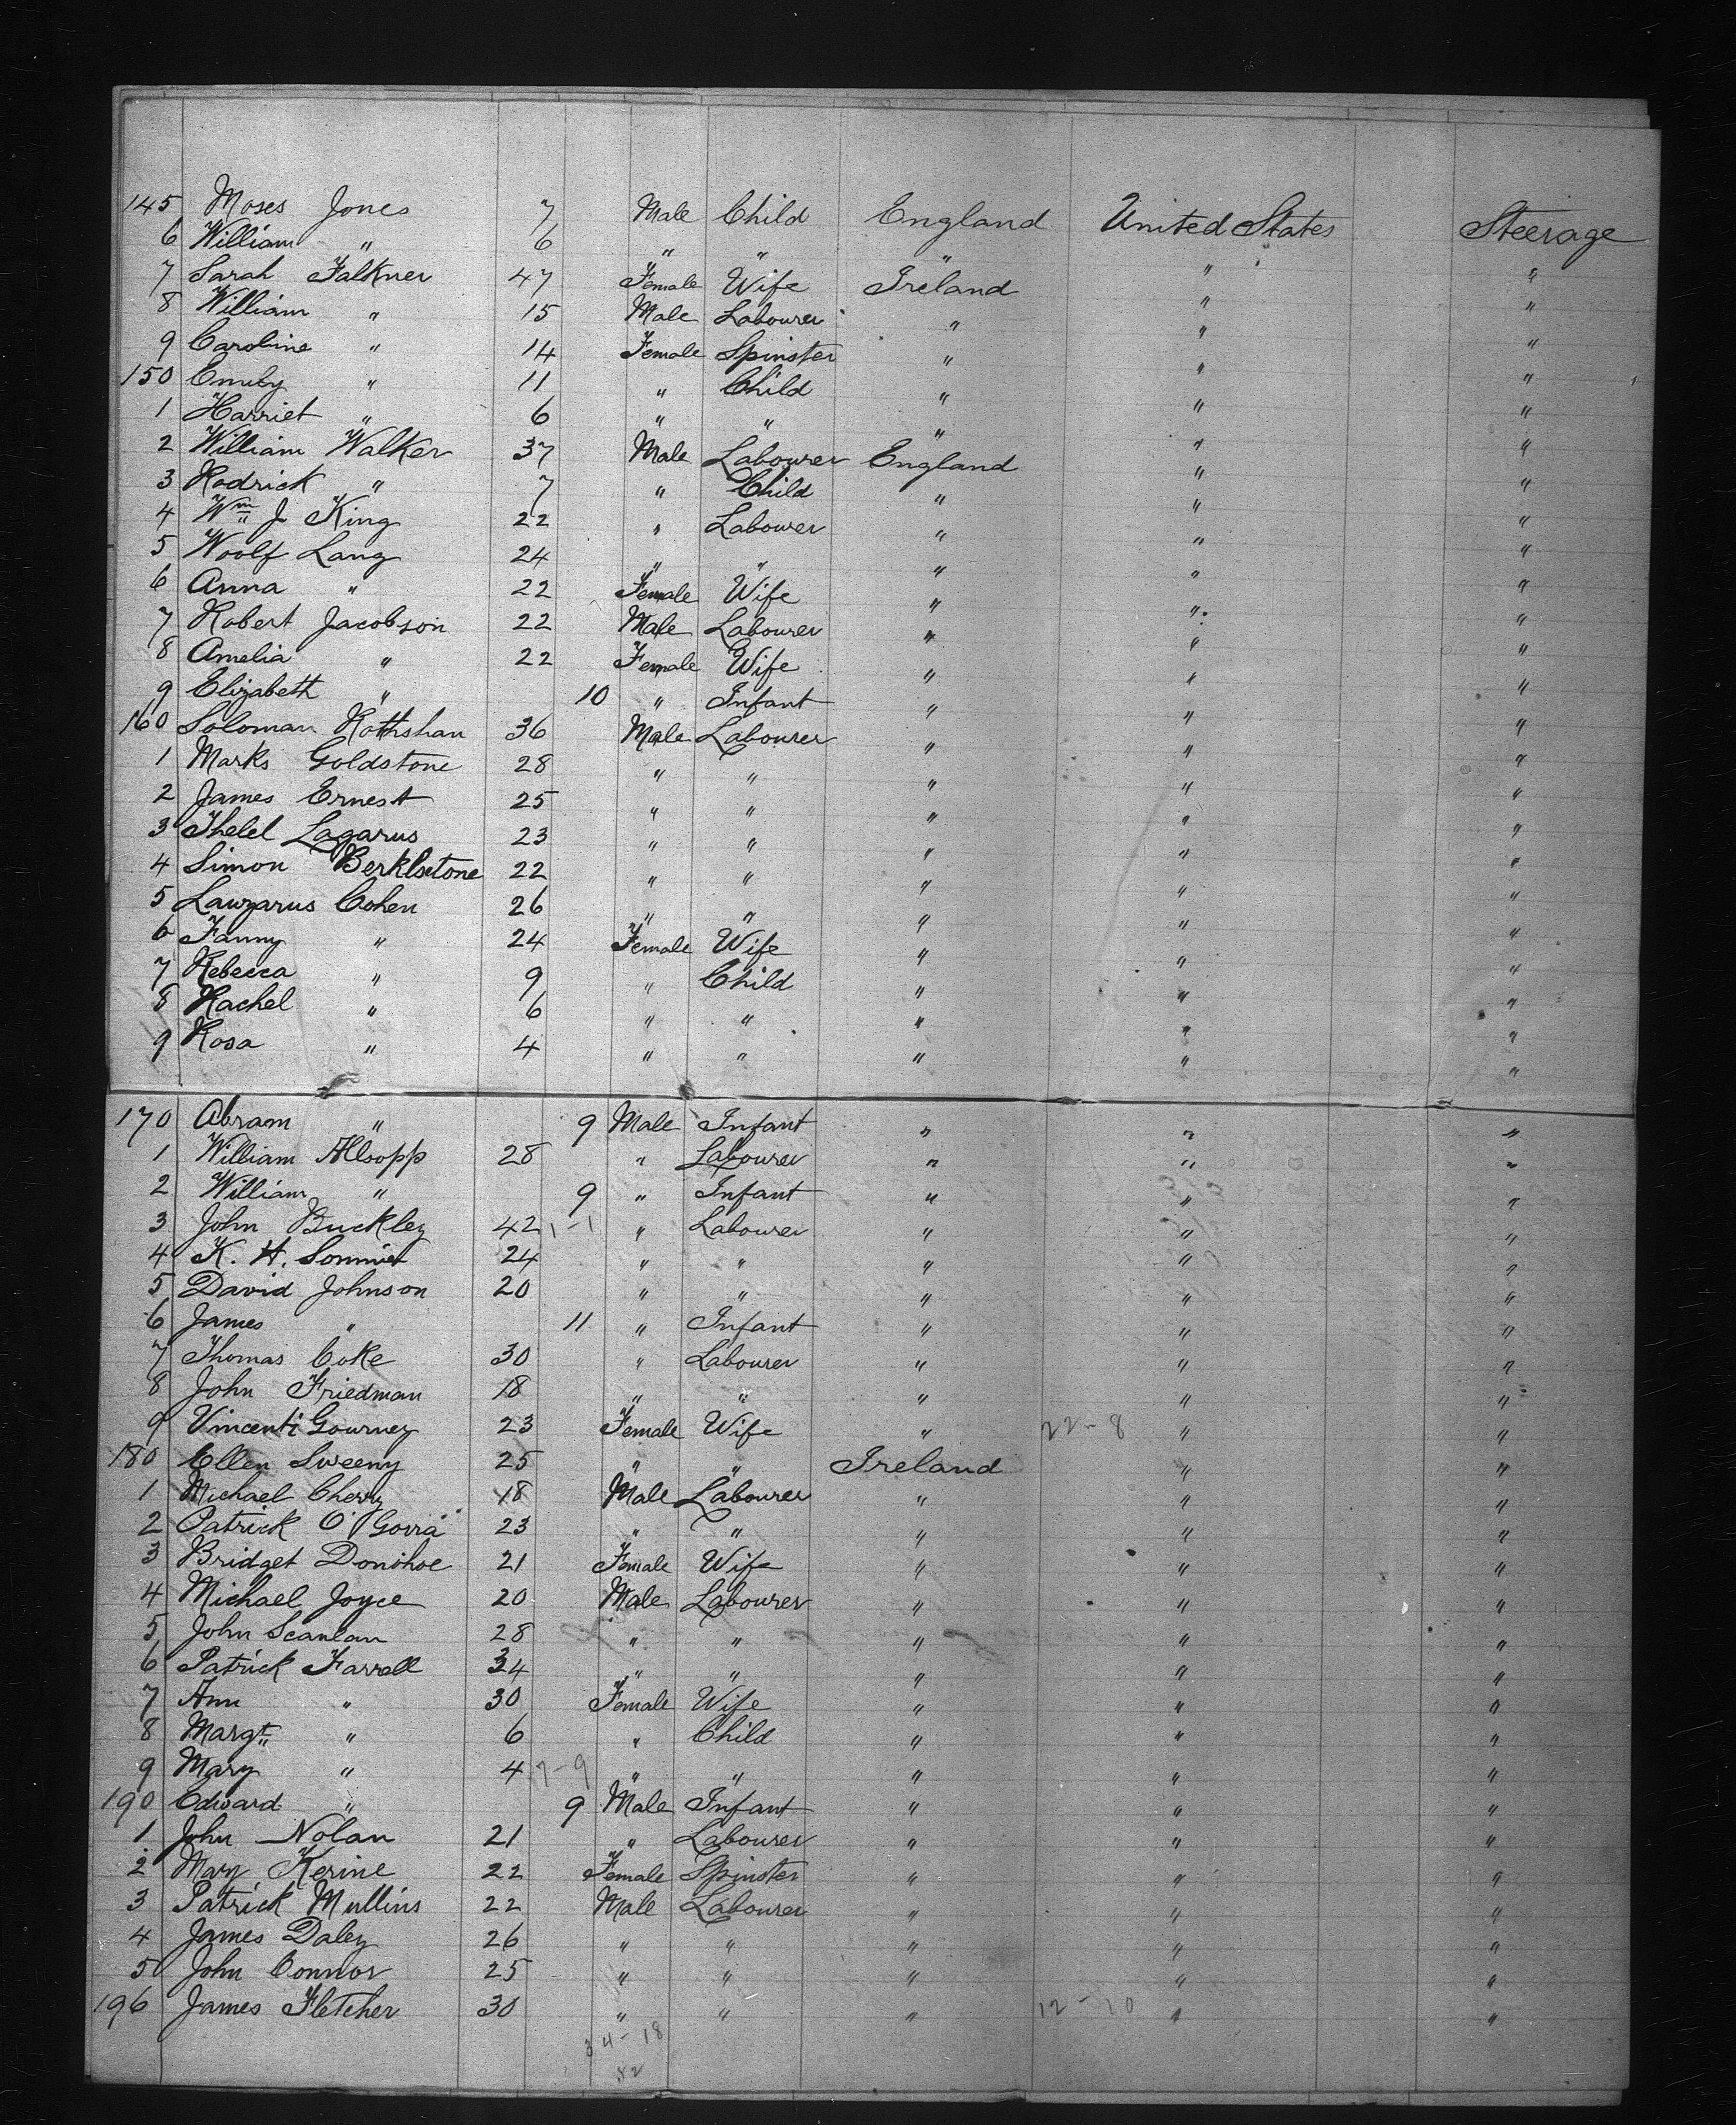 145 Moses Jones 7 Male Child England United States Steerage
6 William " 6 " " " " "
7 Sarah Falkner 47 Female Wife Ireland " "
8 William " 15 Male Labourer " " "
9 Caroline " 14 Female Spinster " " "
150 Emily " 11 " Child " " "
1 Harriet " 6 " " " " "
2 William Walker 37 Male Labourer England " "
3 Rodrick " 7 " Child " " "
4 Wm J King 22 " Labourer " " "
5 Woolf Lang 24 " " " " "
6 Anna " 22 Female Wife " " "
7 Robert Jacobson 22 Male Labourer " " "
8 Amelia " 22 Female Wife " " "
9 Elizabeth " 10 " Infant " " "
160 Soloman Rothshan 36 Male Labourer " " "
1 Marks Goldstone 28 " " " " "
2 James Ernest 25 " " " " "
3 Lazarus 23 " " " " "
4 Simon 22 " " " " "
5 Lawzarus Cohen 26 " " " " "
6 Fanny " 24 Female Wife " " "
7 Rebecca " 9 " Child " " "
8 Rachel " 6 " " " " "
9 Rosa " 4 " " " " "
170 Abram " 9 Male Infant " " "
1 William Allsopp 28 " Labourer " " "
2 William " 9 " Infant " " "
3 John Buckley 42 1-1 " Labourer " " "
4 K. H. 24 " " " " "
5 David Johnson 20 " " " " "
6 James " 11 " Infant " " "
7 Thomas Coke 30 " Labourer " " "
8 John Friedman 18 " " " " "
9 Vincenti Gourney 23 Female Wife " 22-8 " "
180 Ellen Sweeny 25 " " Ireland " "
1 Michael Cherry 18 Male Labourer " " "
2 Patrick O'Gorra 23 " " " " "
3 Bridget Donohoe 21 Female Wife " " "
4 Michael Joyce 20 Male Labourer " " "
5 John Scanlan 28 " " " " "
6 Patrick Farrell 34 " " " " "
7 Ann " 30 Female Wife " " "
8 Margt " 6 " Child " " "
9 Mary " 4 7-9 " " " " "
190 Edward " 9 Male Infant " " "
1 John Nolan 21 " Labourer " " "
2 Mary Kerine 22 Female Spinster " " "
3 Patrick Mullins 22 Male Labourer " " "
4 James Daley 26 " " " " "
5 John Connor 25 " " " " "
196 James Fletcher 30 " " " 12-10 " "
34-18